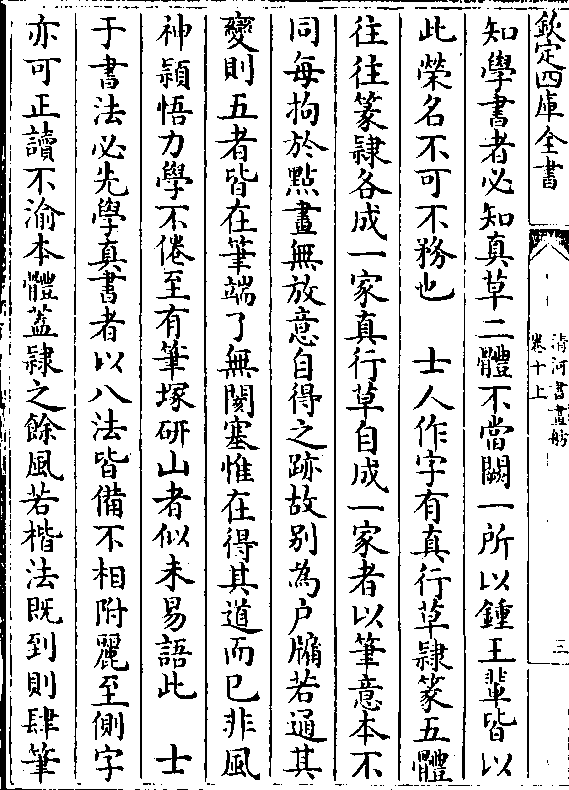 欽定四庫全書
清河書畫舫
卷十上
三
知學書者必知真草二體不當闕一所以鍾王輩皆以
此榮名不可不務也　士人作字有真行草隸篆五體
往往篆隸各成一家真行草自成一家者以筆意本不
同每拘於點畫無放意自得之跡故别為户牖若通其
變則五者皆在筆端了無閡塞惟在得其道而已非風
神穎悟力學不倦至有筆塚研山者似未易語此　士
于書法必先學真書者以八法皆備不相附麗至側字
亦可正讀不渝本體蓋隸之餘風若楷法既到則肆筆